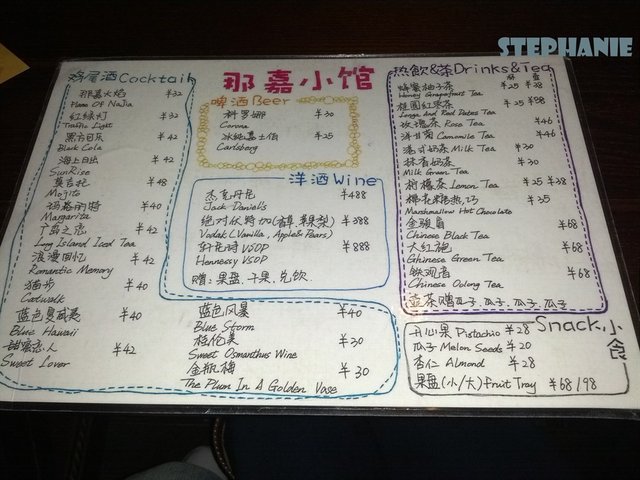 STEPHANIE
那嘉小馆
鸡尾酒Cocktail
那嘉火焰 ¥32
Flame Of NaJia
红绿灯 ¥32
Traffic Light
黑方可乐 ¥42
Black Cola
海上日出 ¥42
SunRise
莫吉托 ¥48
Mojito
玛格丽特 ¥40
Margarita
长岛之恋 ¥42
Long Island Iced Tea
浪漫回忆 ¥42
Romantic Memory
猫步 ¥40
Catwalk
蓝色夏威夷 ¥40
Blue Hawaii
甜蜜恋人 ¥42
Sweet Lover
蓝色风暴 ¥40
Blue Storm
桂花果 ¥30
Sweet Osmanthus Wine
金瓶梅 ¥30
The Plum In A Golden Vase
啤酒Beer
科罗娜 ¥30
Corona
冰纯嘉士伯 ¥25
Carlsberg
洋酒Wine
杰克丹尼 ¥488
Jack Daniel's
绝对伏特加(香草,苹果梨) ¥388
Vodak(Vanilla, Apple&Pears)
轩尼诗VSOP ¥888
Hennessy VSOP
赠:果盘、干果、兑饮
热飲&茶Drinks&Tea
杯 壶
蜂蜜柚子茶 ¥25 ¥38
Honey Grapefruit Tea
桂圆红枣茶 ¥25 ¥38
Longa And Red Dates Tea
玫瑰茶 Rose Tea ¥46
洋甘菊 Camomile Tea ¥46
港式奶茶 Milk Tea ¥30
抹香奶茶 ¥30
Milk Green Tea
柠檬茶 Lemon Tea ¥25 ¥38
棉花糖热巧 ¥35
Marshmallow Hot Chocolate
金骏眉 ¥68
Chinese Black Tea
大红袍 ¥68
Chinese Green Tea
铁观音 ¥68
Chinese Oolong Tea
壶茶赠瓜子、瓜子、瓜子
Snack小食
开心果 Pistachio ¥28
瓜子 Melon Seeds ¥20
杏仁 Almond ¥28
果盘(小/大) Fruit Tray ¥68/98